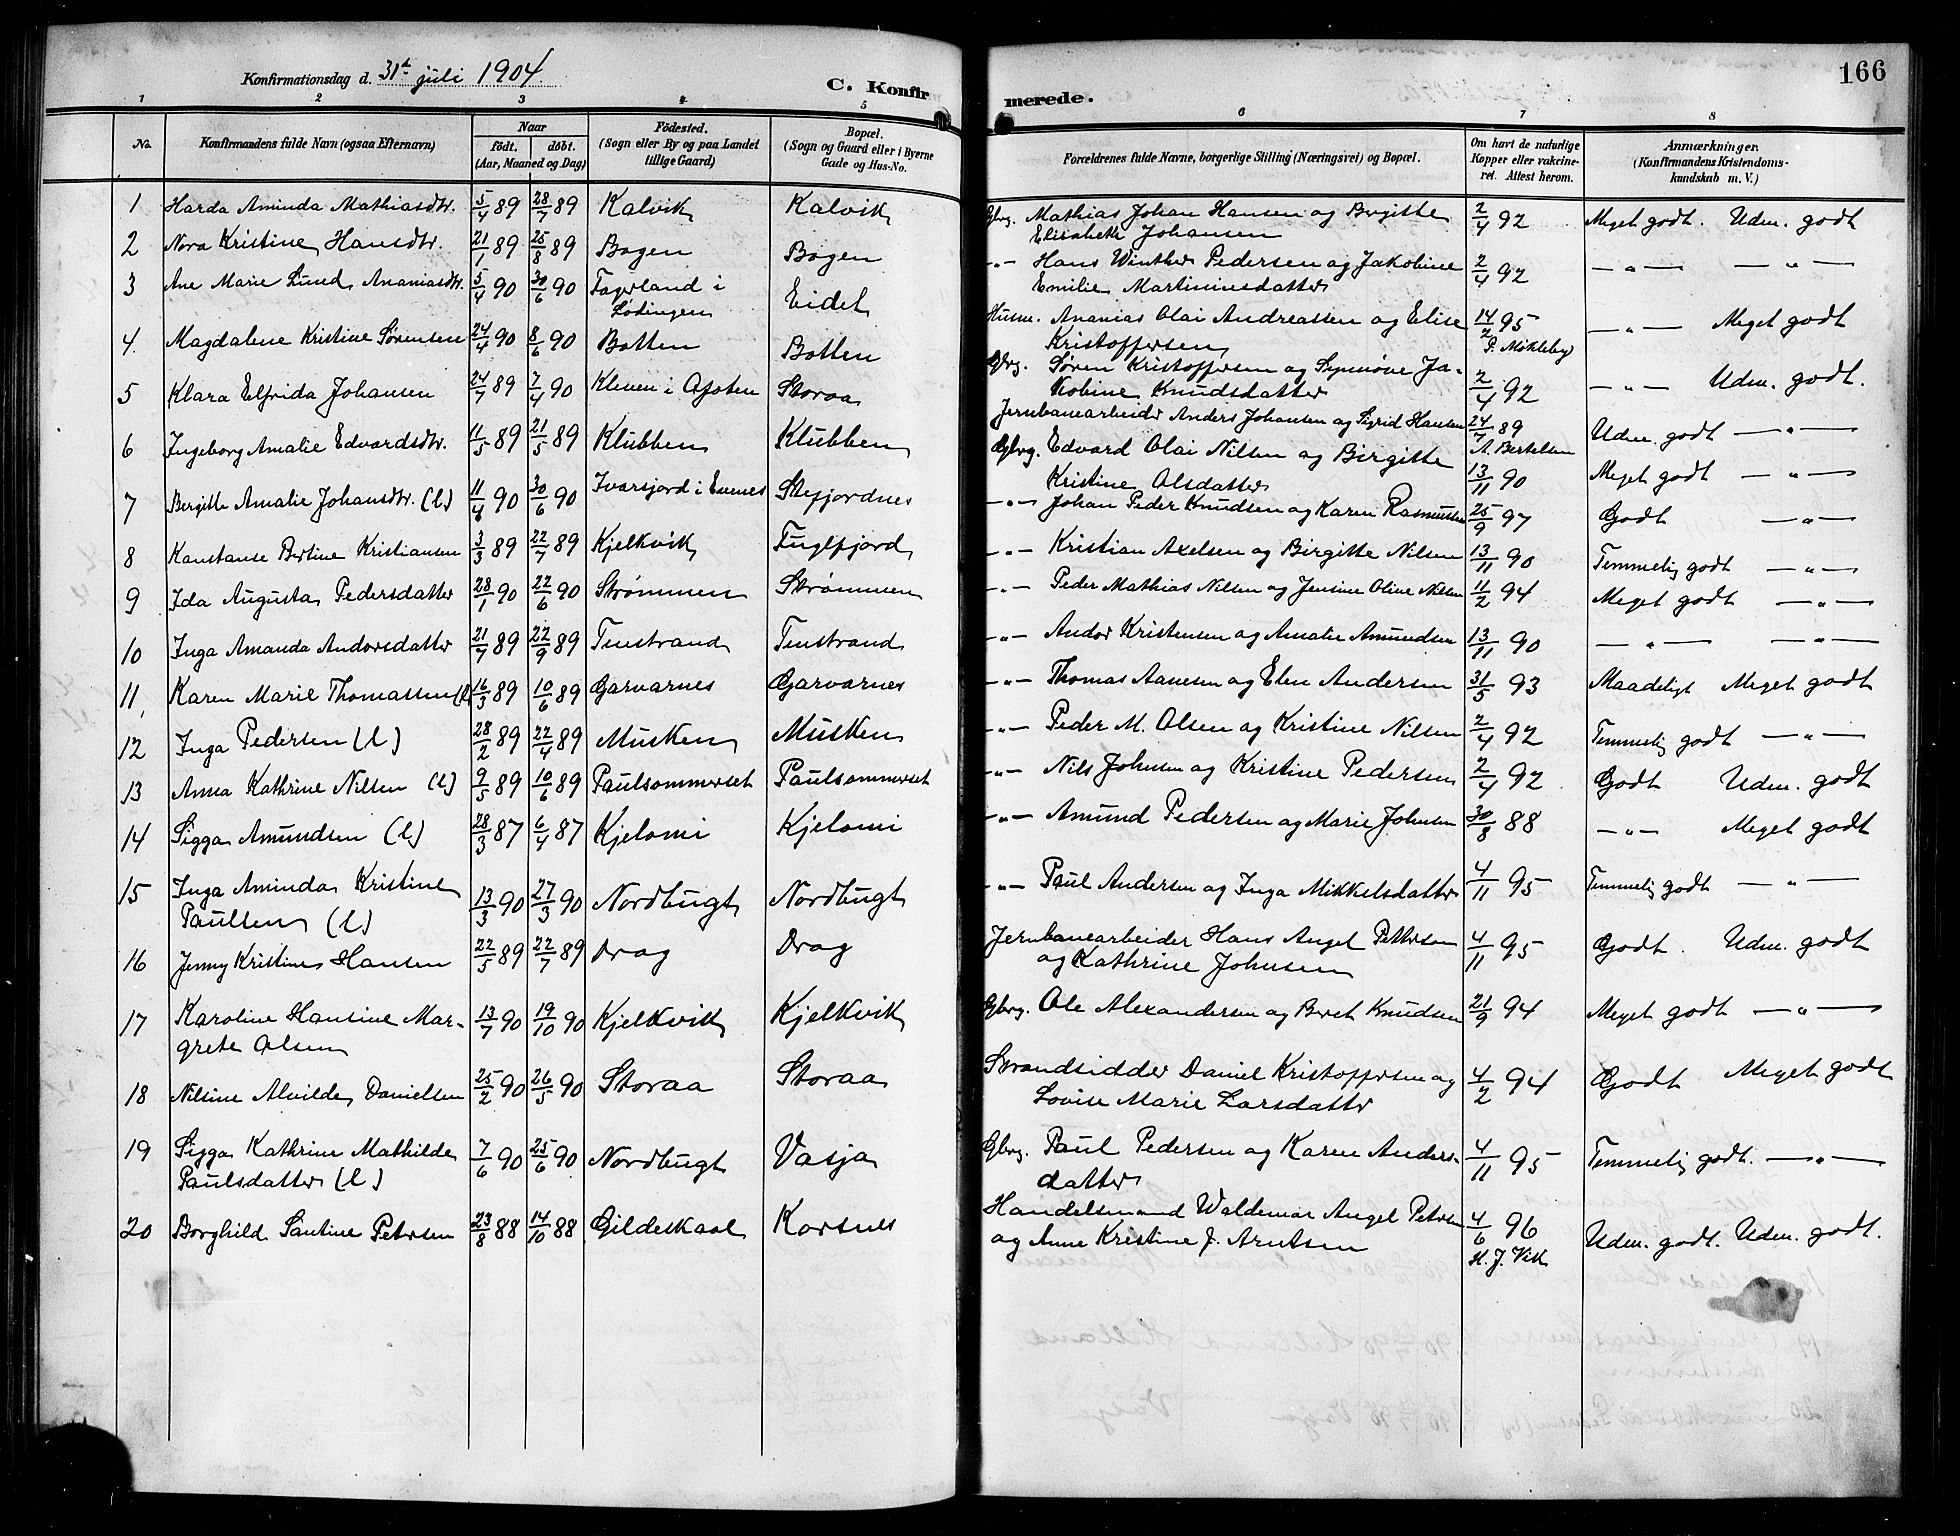 Konfirmationsdag d. 31te juli 1904.
C. Konfirmerede.
166
1 2 3 4 5 6 7 8
No. | Konfirmandens fulde Navn (ogsaa Efternavn) | Naar født. døbt. (Aar, Maaned og Dag) | Fødested. (Sogn eller By og paa Landet tillige Gaard) | Bopæl. (Sogn og Gaard eller i Byerne Gade og Hus-No. | Forældrenes fulde Navne, borgerlige Stilling (Næringsvei) og Bopæl. | Om havt de naturlige Kopper eller vakcineret. Attest herom. | Anmærkninger. (Konfirmandens Kristendomskundskab m. V.)
1 Harda Aminda Mathiasdtr. 5/4 89 28/7 89 Kalvik Kalvik Gbrg. Mathias Johan Hansen og Birgitte Elisabeth Johansen 2/4 92 Meget godt. Udm. godt
2 Nora Kristine Hansdtr. 21/1 89 25/8 89 Bogen Bogen -"- Hans Winther Pedersen og Jakobine Emilie Martiniusdatter 2/4 92 -"- -"-
3 Ane Marie Lund Ananiasdtr. 5/4 90 30/6 90 Fagerland i Lødingen Eidet Husm. Ananias Olai Andreassen og Elise Kristoffersen 14/2 95 P. Møkleby -"- Meget godt
4. Magdalene Kristine Sørensen 24/4 90 8/6 90 Botten Botten Gbrg. Søren Kristoffersen og Synnøve Jakobine Knudsdatter 2/4 92 -"- Udm. godt.
5 Klara Elfrida Johansen 24/7 89 7/4 90 Kleven i Ofoten Storaa Jernbanearbeider Anders Johansen og Sigrid Hansen 24/7 89 A. Bertelsen Udm. godt -"-
6 Ingeborg Amalie Edvardsdtr. 11/5 89 21/5 89 Klubben Klubben Gbrg. Edvard Olai Nilsen og Birgitte Kristine Olsdatter 13/11 90 Meget godt -"-
7 Bergitte Amalie Johansdtr. (l) 11/4 90 30/6 90 Ivarsjord i Evenes Stefjordnes -"- Johan Peder Knudsen og Karen Rasmussen 25/9 97 Godt -"-
8 Konstanse Bertine Kristiansen 3/3 89 22/7 89 Kjelkvik Fuglfjord -"- Kristian Axelsen og Birgitte Nilsen 13/11 90 Temmelig godt -"-
9 Ida Augusta Pedersdatter 28/1 90 22/6 90 Strømmen Strømmen -"- Peder Mathias Nilsen og Jensine Oline Nilsen 11/2 94 Meget godt -"-
10 Inga Amanda Andorsdatter 21/7 89 22/9 89 Tenstrand Tenstrand -"- Andor Kristensen og Amalie Amundsen 13/11 90 -"- -"-
11, Karen Marie Thomassen (l) 16/3 89 10/6 89 Garvarnes Garvarnes -"- Thomas Aanesen og Elen Andersen 31/5 93 Maadeligt Meget godt
12 Inga Pedersen (l) 28/2 89 22/4 89 Musken Musken -"- Peder M. Olsen og Kristine Nilsen 2/4 92 Temmelig godt -"-
13 Anna Kathrine Nilsen (l) 9/5 89 10/6 89 Paulsommerset Paulsommerset -"- Nils Johnsen og Kristine Pedersen 2/4 92 Godt Udm. godt
14 Sigga Amundsen (l) 28/3 87 6/4 87 Kjelomi Kjelomi -"- Amund Pedersen og Marie Johnsen 30/8 88 -"- Meget godt
15 Inga Aminda Kristine Paulsen (l) 13/3 90 27/3 90 Nordbugt Nordbugt -"- Paul Andersen og Inga Mikkelsdatter 4/11 95 Temmelig godt -"-
16 Jenny Kristine Hansen 22/5 89 22/7 89 Drag Drag Jernbanearbeider Hans Angel Petterson og Kathrine Johnsen 4/11 95 Godt. Udm. godt
17 Karoline Hansine Margrete Olsen 13/7 90 19/10 90 Kjelkvik Kjelkvik Gbrg. Ole Alexandersen og Beret Knudsen 21/9 94 Meget godt -"-
18 Nilsine Alvilde Danielsen 25/2 90 26/5 90 Storaa Storaa Strandsidder Daniel Kristoffersen og Lovise Marie Larsdatter 4/2 94 Godt Meget godt
19 Sigga Kathrine Mathilde Paulsdatter (l) 7/6 90 25/6 90 Nordbugt Vasja Gbrg. Paul Pedersen og Karen Andersdatter 4/11 95 Temmelig godt. -"-
20 Borghild Santine Petersen 23/8 88 14/10 88 Gildeskaal Korsnes Handelsmand Waldemar Angel Petersen og Anne Kristine J. Arntsen 4/6 96 H. J. Vik Udm. godt. Udm. godt.